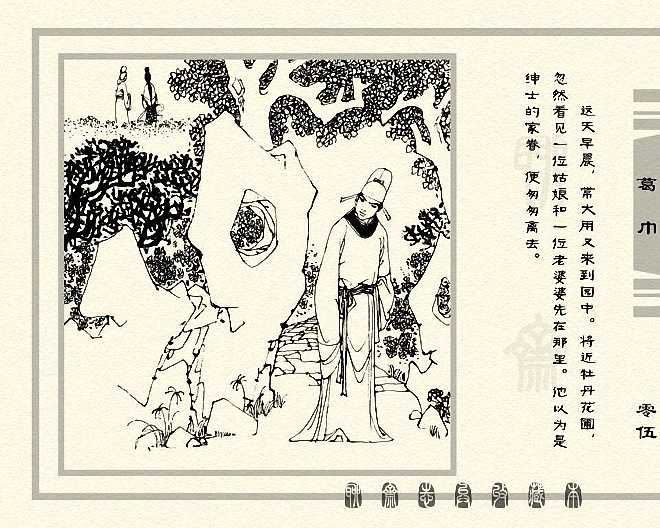 这天早晨，常大用又来到园中。将近牡丹花圃，
忽然看见一位姑娘和一位老婆婆先在那里。他以为是
绅士的家眷，便匆匆离去。
葛巾
零伍
聊斋志异收藏本